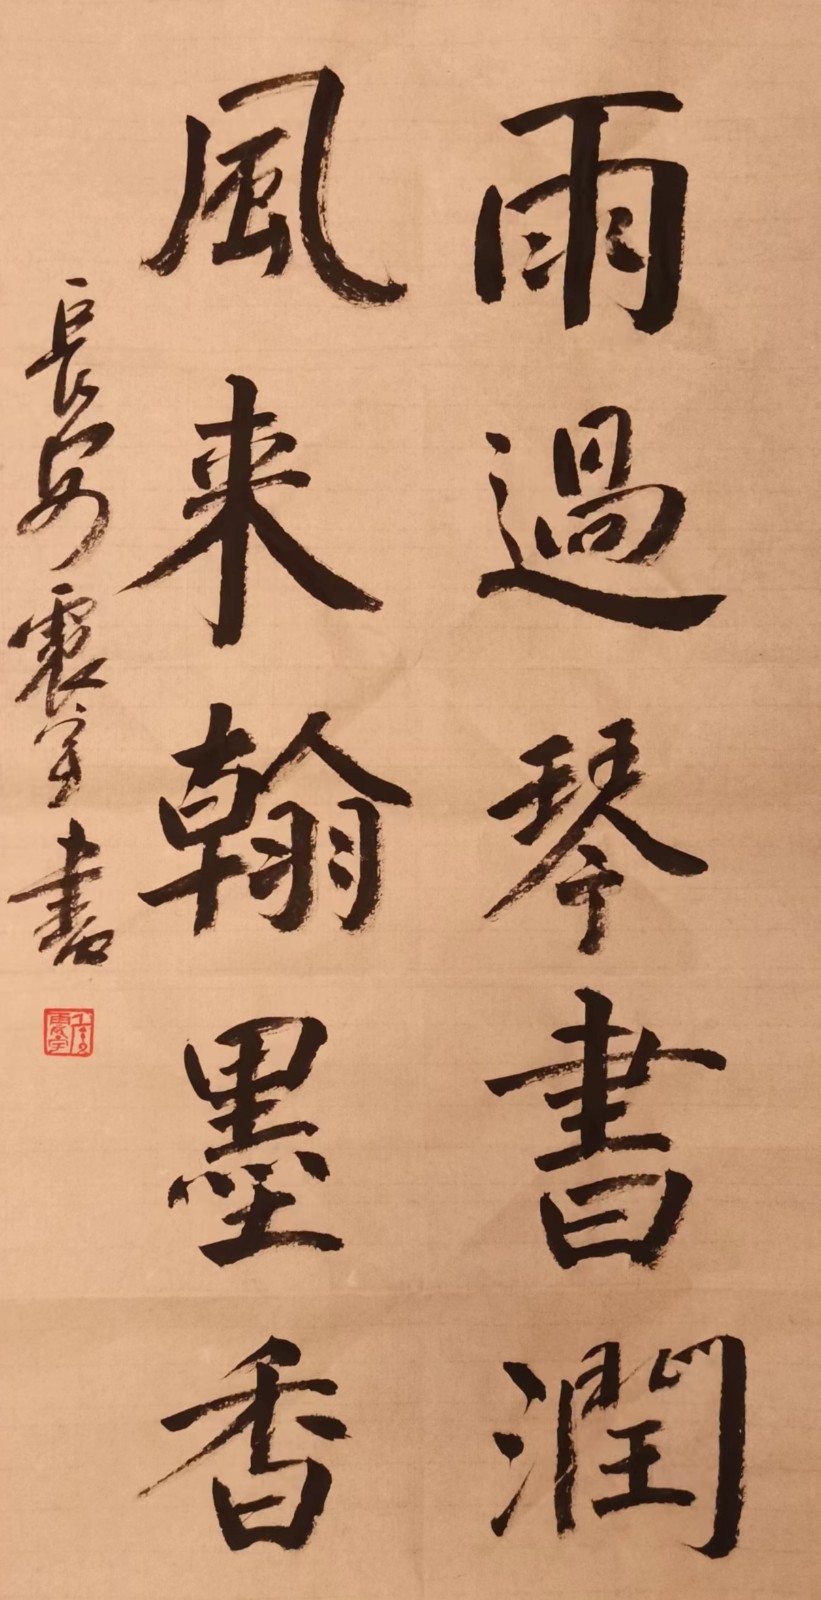 雨過琴書潤
風来翰墨香
長安震宇書